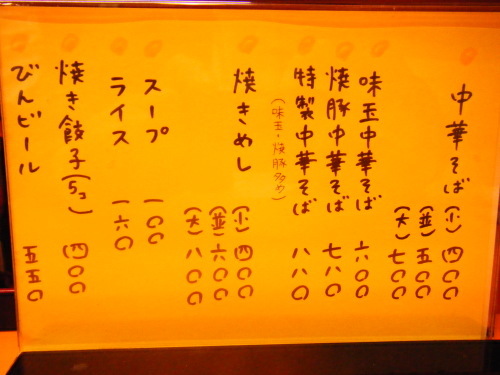 中華そば(小)四〇〇
(並)五〇〇
(大)七〇〇
味玉中華そば 六〇〇
焼豚中華そば 七八〇
特製中華そば 八八〇
(味玉・焼豚多め)
焼きめし(小)四〇〇
(並)六〇〇
(大)八〇〇
スープ 一〇〇
ライス 一六〇
焼き餃子(5コ)四〇〇
びんビール 五五〇